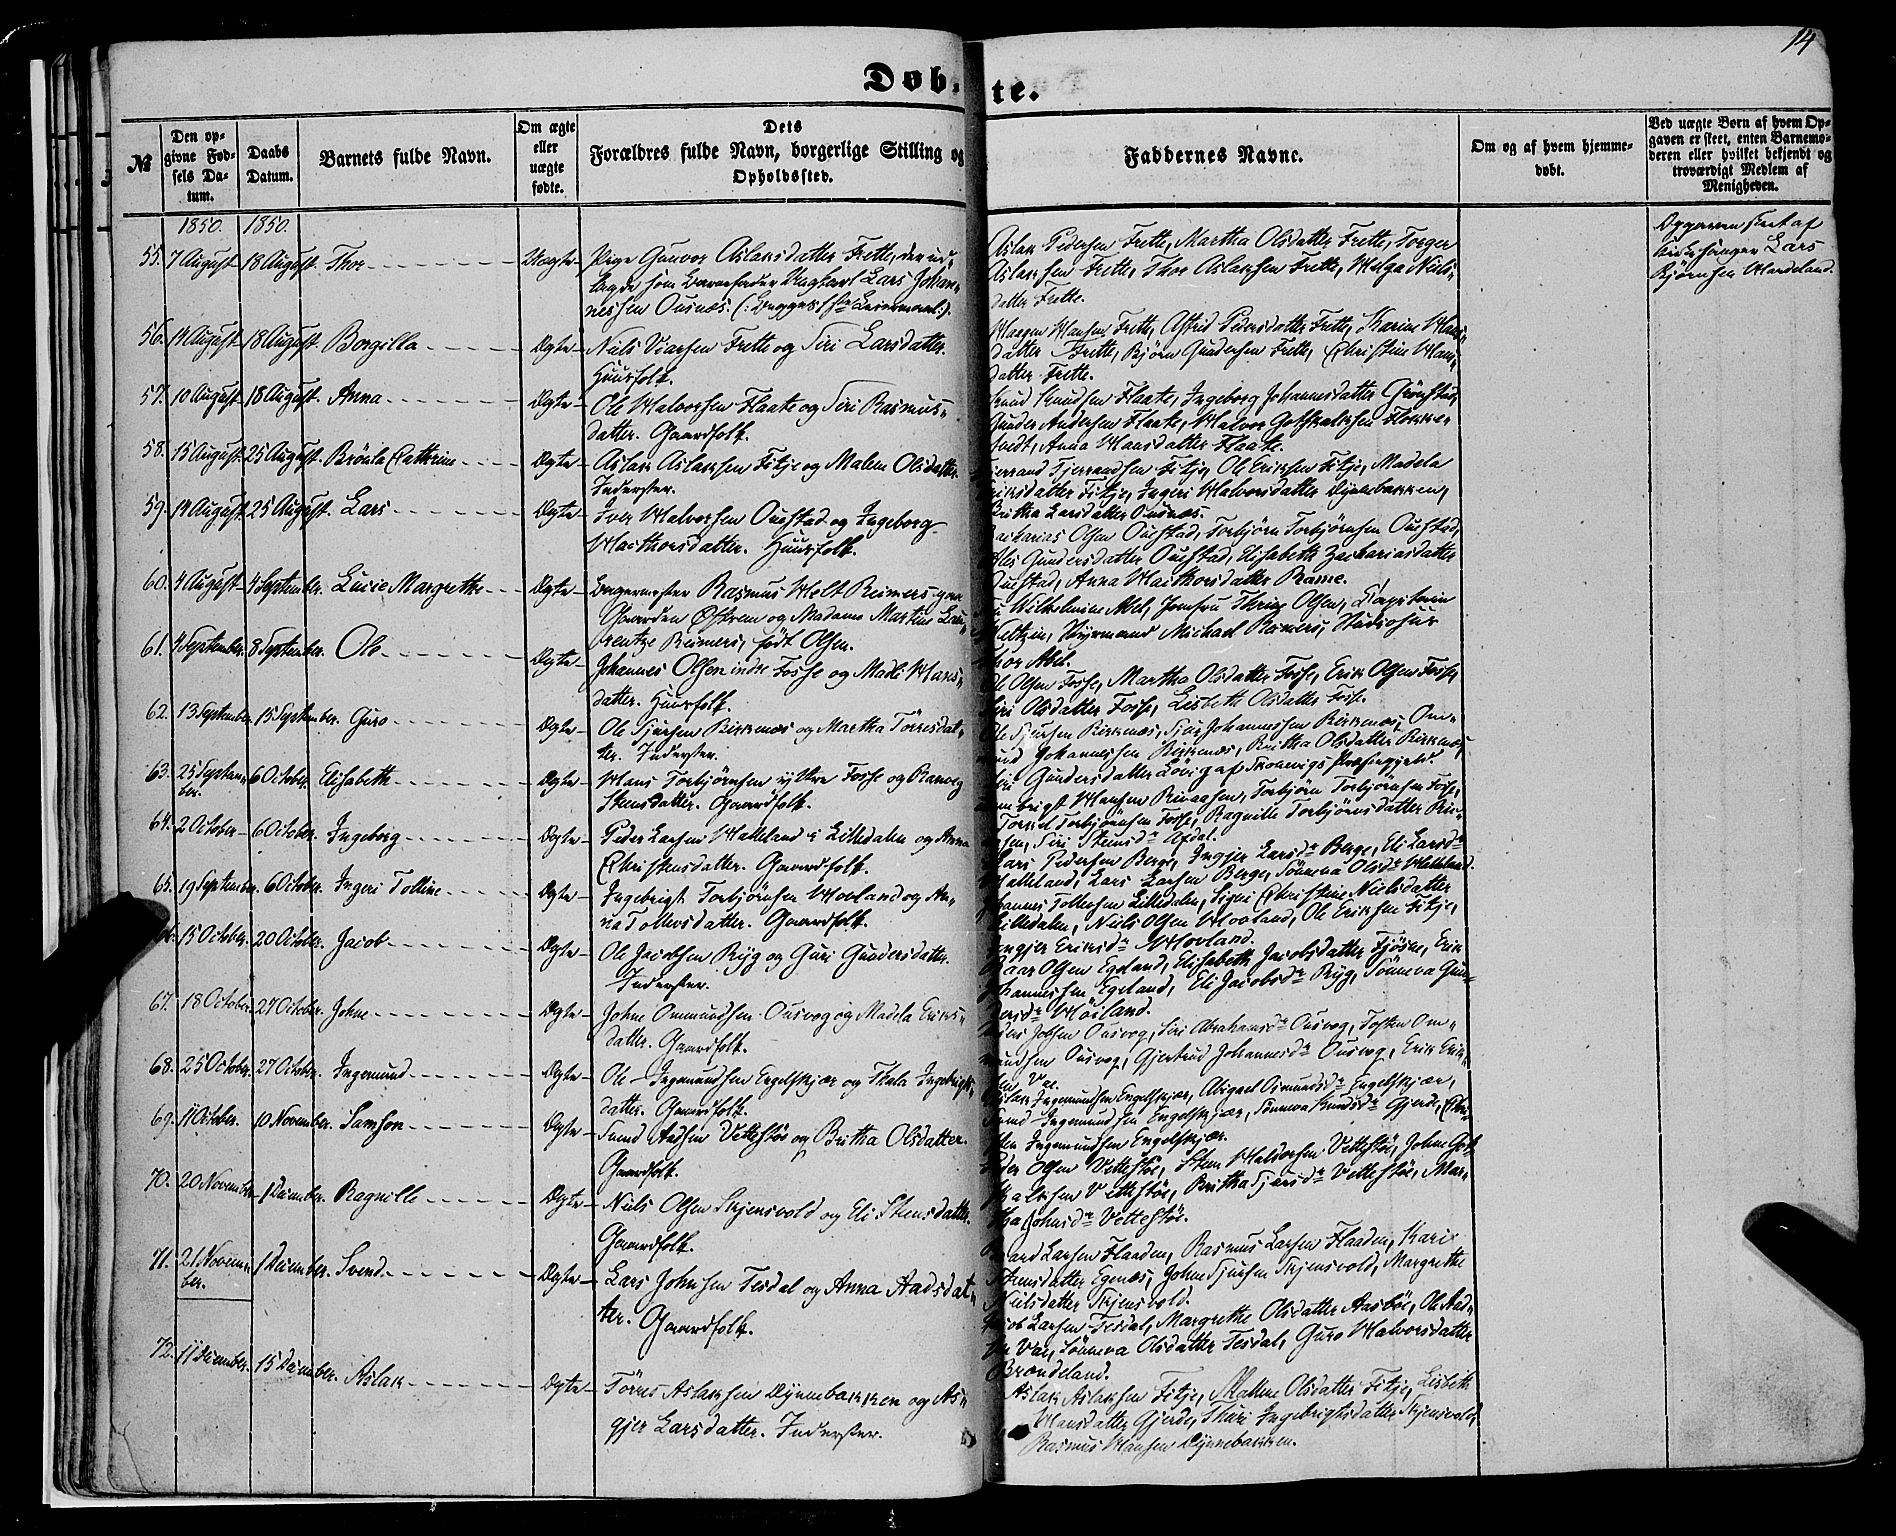 14
Døb.
te.
№
Den op-
givne Fød-
sels Da-
tum.
Daabs
Datum.
Barnets fulde Navn.
Om ægte
eller
uægte
fødte.
Dets
Forældres fulde Navn, borgerlige Stilling og
Opholdssted.
Faddernes Navne.
Om og af hvem hjemme-
døbt.
Ved uægte Børn af hvem Op-
gaven er skeet, enten Barnemo-
deren eller hvilket bekjendt og
troværdigt Medlem af
Menigheden.
1850. 1850.
55. 7 August 18 August. Thor Uægte Pige Gunvor Aslaksdatter Frette, der ud-
lagde som Barnefader Ungkarl Lars Johan-
nessen Ousnæs. (: Begges 1ste Leiermaal:).
Aslak Pedersen Frette, Martha Olsdatter Frette, Torger
Aslaksen Frette, Thor Aslaksen Frette, Helga Niels-
datter Frette.
Opgaven skeet af
Kirkesanger Lars
Bjørnsen Hardeland.
56. 14 August 18 August. Borgilla Ægte Niels Viarsen Frette og Siri Larsdatter.
Huusfolk.
Haagen Hansen Frette, Astrid Pedersdatter Frette, Karine Hans-
datter Frette, Bjørn Gundersen Frette, Christine Hans-
datter Frette.
57. 10 August 18 August. Anna Ægte Ole Halvorsen Flaate og Siri Rasmus-
datter. Gaardfolk.
Knud Knudsen Flaate, Ingeborg Johannesdatter Grønstad,
Gunder Andersen Flaate, Halvor Gotskalksen Flokke-
tvedt, Anna Hansdatter Flaate.
58. 15 August 25 August. Brönla Cathrine Ægte Aslak Aslaksen Fitje og Malene Olsdatter.
Inderster.
Tjerrand Tjerrandsen Fitje, Ole Eriksen Fitje, Madela
Eriksdatter Fitje, Ingeri Halvorsdatter Dynnebakken,
Britha Larsdatter Ousnæs.
59 14 August 25 August. Lars Ægte Iver Halvorsen Oustad og Ingeborg
Hacthorsdatter. Huusfolk.
Zacharias Olsen Oustad, Torbjørn Torbjørnsen Oustad,
Alis Gundersdatter Oustad, Elisabeth Zachariasdatter
Oustad, Anna Hacthorsdatter Rame.
60. 4 August 4 September. Lucie Margrethe Ægte Borgermester Rasmus Helt Reimers paa
Gaarden Østrem og Madame Martine Lau-
rentze Reimers, født Olsen.
Wilhelmine Abel, Jomfru Thrine Olsen, Kapitain
Weltzin, Styrmand Michael Reimers,
Thor Abel.
61. 4 September. 8 September. Ole Ægte Johannes Olsen indre Fosse og Madli Hans-
datter. Huusfolk.
Ole Olsen Fosse, Martha Olsdatter Fosse, Erik Olsen Fosse,
Siri Olsdatter Fosse, Lisbeth Olsdatter Fosse.
62. 13 September. 15 September. Guro Ægte Ole Sjursen Birkenæs og Martha Törresdat-
ter. Inderster.
Ole Sjursen Birkenæs, Sjur Johannessen Birkenæs, Om-
mund Johannessen Birkenæs, Britha Olsdatter Birkenæs,
Siri Gundersdatter Løvig af Skonevigs Præstegjeld.
63. 25 Septem-
ber. 6 October. Elisabeth Ægte Hans Torbjørnsen ydtre Fosse og Ranveg
Stensdatter. Gaardfolk.
Ingebrigt Hansen Risaasen, Torbjørn Torbjørnsen Fosse,
Torkel Torbjørnsen Fosse, Ragnille Torbjørnsdatter Ris-
aasen, Siri Stensdr Afdal.
64. 2 October 6 October. Ingeborg Ægte Peder Larsen Halleland i Lilledalen og Anna
Christensdatter. Gaardfolk.
Lars Pedersen Berge, Ingjer Larsdr Berge, Eli Larsdr
Halleland, Lars Larsen Berge, Tönneva Olsdr Halleland.
65. 19 September. 6 October. Ingeri Tolline Ægte Ingebrigt Torbjørnsen Hovland og An-
na Tollevsdatter. Gaardfolk.
Johannes Tollevsen Lilledalen, Signi Christine Nielsdatter
Lilledalen, Niels Olsen Hovland, Ole Eriksen Fitje,
Ingjer Eriksdr Hovland.
66. 15 October. 20 October. Jacob Ægte Ole Jacobsen Ryg og Guri Gundersdatter.
Inderster.
Baar Olsen Egeland, Elisabeth Jacobsdatter Fjösne, Erik
Johannessen Egeland, Eli Jacobsdr Ryg, Tönneva Gun-
dersdr Høiland.
67. 18 October. 27 October. Johne Ægte Johne Ommundsen Ousvog og Madela Eriks-
datter. Gaardfolk.
Peder Johsen Ousvog, Siri Abrahamsdr Ousvog, Tosten Om-
mundsen Ousvog, Gjertrud Johannesdr Ousvog, Erik Erik-
sen Vae.
68. 25 October. 27 October. Ingemund Ægte Ole Ingemundsen Engelskjær og Thala Ingebrigts-
datter. Gaardfolk.
Aslak Ingemundsen Engelskjær, Abigael Osmundsdr Engelskjær,
Svend Ingemundsen Engelskjær, Tönneva Knudsdr Gjerde, Chri-
sten Ingemundsen Engelskjær.
69. 11 October. 10 November. Samson Ægte Svend Aadsen Vettestøe og Britha Olsdatter.
Gaardfolk.
Peder Olsen Vettestøe, Sten Halvorsen Vettestøe, Johne Got-
skalksen Vettestøe, Britha Sjursdr Vettestøe, Mar-
tha Johnsdr Vettestøe.
70. 20 November 1 December. Ragnille Ægte Niels Olsen Skjensvold og Eli Stensdatter.
Gaardfolk.
Lars Larsen Flaaden, Rasmus Larsen Flaaden, Kari
Stensdatter Egenæs, Johne Sjursen Skjensvold, Margrethe
Nielsdatter Skjensvold.
71. 21 Novem-
ber. 1 December. Svend Ægte Lars Johnsen Tesdal og Anna Aadsdat-
ter. Gaardfolk.
Jacob Larsen Tesdal, Margrethe Olsdatter Aasbøe, Ole Aad-
sen Vae, Tönneva Olsdatter Tesdal, Guro Halvorsdatter
Brændeland.
72. 11 December. 15 December. Aslak Ægte Törres Aslaksen Dynnebakken og As-
gjer Larsdatter. Inderster.
Aslak Aslaksen Fitje, Malene Olsdatter Fitje, Lisbeth
Hansdatter Gjerde, Skuri Ingebrigtsdatter Skjensvold,
Rasmus Hansen Dynnebakken.